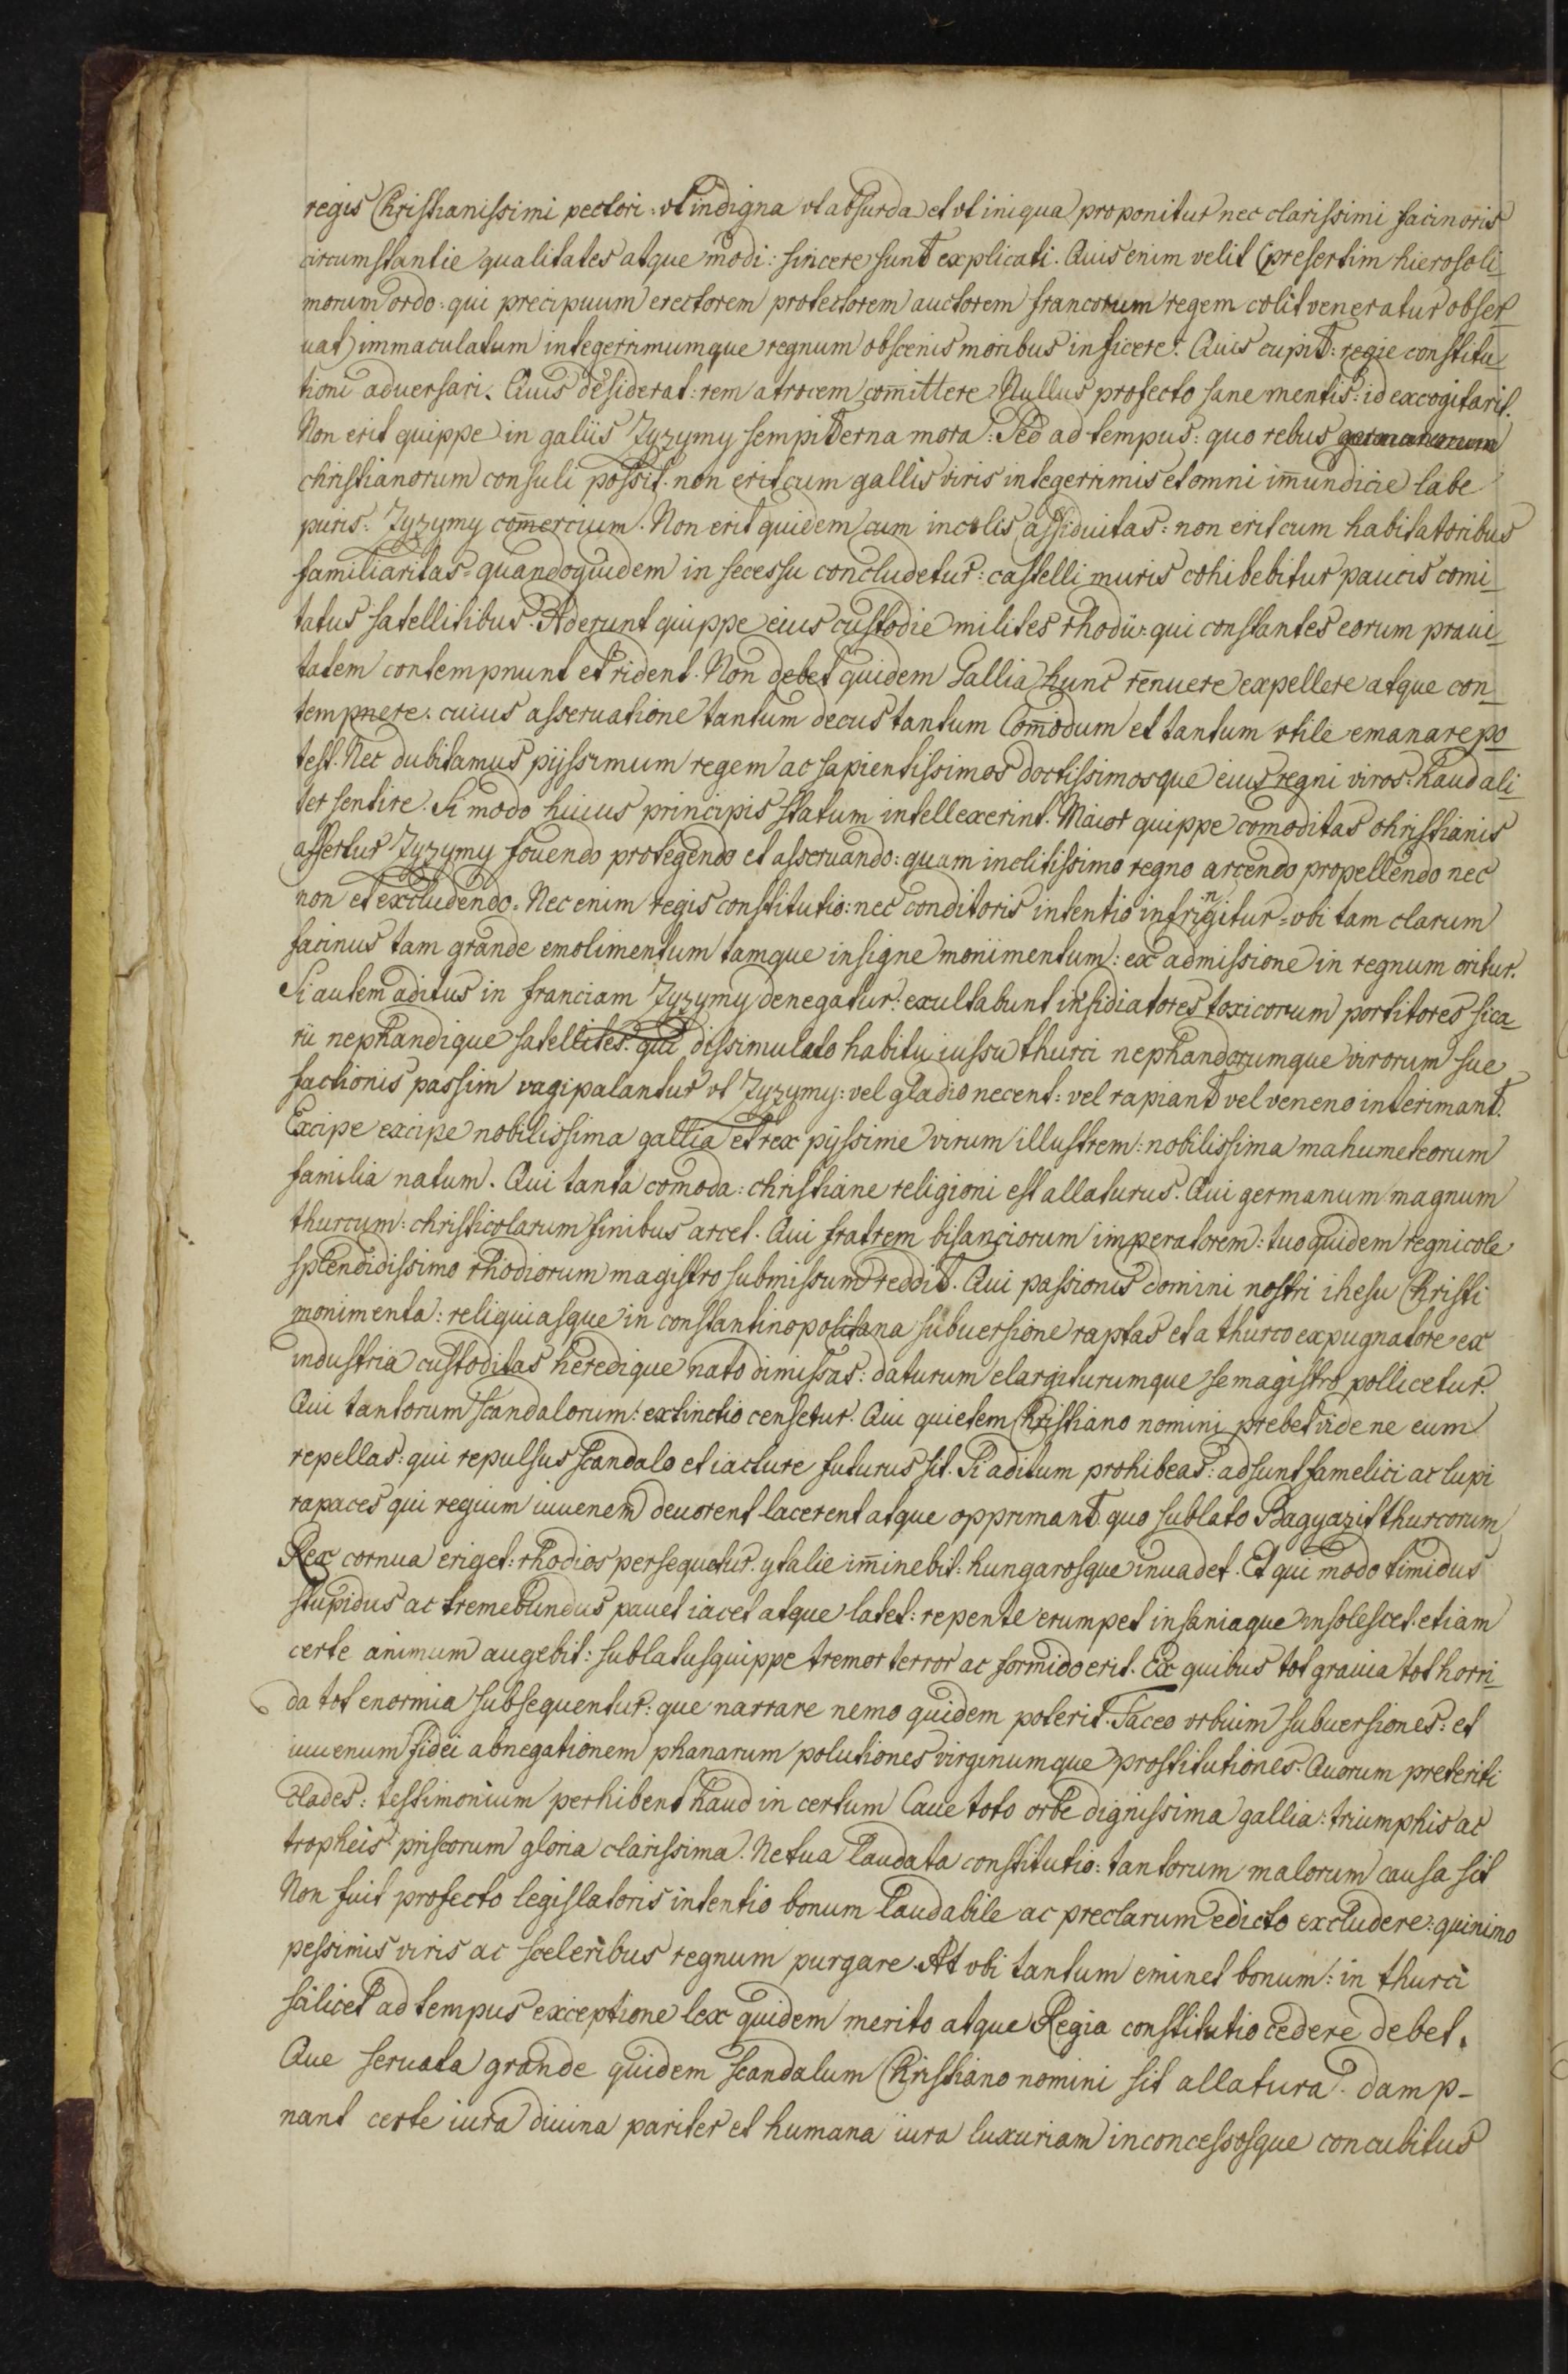 regis Christianissimi pectori: vt indigna vt absurda et vt iniqua proponitur nec clarissimi facinoris
circumstantie qualitates atque modi: sincere sunt explicati. Quis enim velit (presertim hierosoli-
morum ordo: qui precipuum erectorem protectorem auctorem francorum regem colit veneratur obser-
uat) immaculatum integerrimumque regnum obscenis moribus inficere. Quis cupit: regie constitu-
tioni aduersari. Quis desiderat: rem atrocem com̄ittere. Nullus profecto sane mentis: id excogitarit.
Non erit quippe in galiis Zyzymy sempiterna mora: Sed ad tempus: quo rebus
christianorum consuli possit. non erit cum gallis viris integerrimis et omni im̄undicie labe
puris: Zyzymy com̄ercium. Non erit quidem cum incolis assiduitas: non erit cum habitatoribus
familiaritas: quandoquidem in secessu concludetur: castelli muris cohibebitur paucis comi-
tatus satellitibus. Aderunt quippe eius custodie milites rhodii: qui constantes eorum praui-
tatem contempnunt et rident. Non debet quidem Gallia hunc rēnuere expellere atque con-
tempnere. cuius asseruatione tantum decus tantum Com̄odum et tantum vtile emanare po-
test. Nec dubitamus pijssimum regem ac sapientissimos doctissimosque eius regni viros: haud ali-
ter sentire. Si modo huius principis statum intellexerint. Maior quippe comoditas christianis
affertur Zyzymy fouendo protegendo et asseruando: quam inclitissimo regno arcendo propellendo nec
non et excludendo. Nec enim regis constitutio: nec conditoris intentio infringitur: vbi tam clarum
facinus tam grande emolimentum tamque insigne monimentum: ex admissione in regnum oritur.
Si autem aditus in franciam Zyzymy denegatur: exultabunt insidiatores toxicorum portitores sica-
rii nephandique satellites: qui dissimulato habitu iussu thurci nephandorumque virorum sue
factionis passim vagi palantur vt Zyzymy: vel gladio necent: vel rapiant vel veneno interimant.
Excipe excipe nobilissima gallia et rex pijssime virum illustrem: nobilissima mahumeteorum
familia natum. Qui tanta comoda: christiane religioni est allaturus. Qui germanum magnum
thurcum: christicolarum finibus arcet. Qui fratrem bisanciorum imperatorem: tuo quidem regnicole
splendidissimo rhodiorum magistro submissum reddit. Qui passionis domini nostri ihesu Christi
monimenta: reliquiasque in constantinopolitana subuersione raptas et a thurco expugnatore ex
industria custoditas heredique nato dimissas: daturum elargiturumque se magistro pollicetur.
Qui tantorum scandalorum: extinctio censetur. Qui quietem Christiano nomini prebet vide ne eum
repellas: qui repulsus scandalo et iacture futurus sit. Si aditum prohibeas: adsunt famelici ac lupi
rapaces qui regium iuuenem deuorent lacerent atque opprimant. quo sublato Bagyazit thurcorum
Rex cornua eriget: rhodios persequetur. ytalie im̄inebit: hungarosque inuadet. Et qui modo timidus
stupidus ac tremebundus pauet iacet atque latet: repente erumpet insaniaque insolescet. etiam
certe animum augebit: sublatus quippe tremor terror ac formido erit. Ex quibus tot grauia tot horri-
da tot enormia subsequentur: que narrare nemo quidem poterit. Taceo vrbium subuersiones: et
iuuenum fidei abnegationem phanarum polutiones virginumque prostitutiones. Quorum preteriti
clades: testimonium perhibent haud in certum Caue toto orbe dignissima gallia: triumphis ac
tropheis priscorum gloria clarissima. Ne tua laudata constitutio: tantorum malorum causa sit
Non fuit profecto legislatoris intentio bonum laudabile ac preclarum edicto excludere: quinimo
pessimis viris ac sceleribus regnum purgare. At vbi tantum eminet bonum: in thurci
scilicet ad tempus exceptione lex quidem merito atque Regia constitutio cedere debet.
Que seruata grande quidem scandalum Christiano nomini sit allatura. damp-
nant certe iura diuina pariter et humana iura luxuriam inconcessosque concubitus